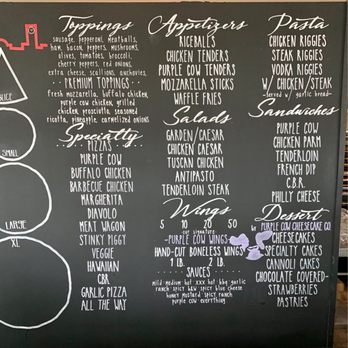 SLICE
SMALL
LARGE
XL
Toppings
sausage, pepperoni, meatballs,
ham, bacon, peppers, mushrooms,
olives, tomatoes, broccoli,
cherry peppers, red onions,
extra cheese, scallions, anchovies,
- PREMIUM TOPPINGS -
fresh mozzarella, buffalo chicken,
purple cow chicken, grilled
chicken, prosciutto, seasoned
ricotta, pineapple, caramelized onions
Specialty
PIZZAS
PURPLE COW
BUFFALO CHICKEN
BARBECUE CHICKEN
MARGHERITA
DIAVOLO
MEAT WAGON
STINKY PIGGY
VEGGIE
HAWAIIAN
CBR
GARLIC PIZZA
ALL THE WAY
Appetizers
RICEBALLS
CHICKEN TENDERS
PURPLE COW TENDERS
MOZZARELLA STICKS
WAFFLE FRIES
Salads
GARDEN/CAESAR
CHICKEN CAESAR
TUSCAN CHICKEN
ANTIPASTO
TENDERLOIN STEAK
Wings
5 10 20 50
our signature
-PURPLE COW WINGS-
HAND-CUT BONELESS WINGS
1 LB. 2 LB.
SAUCES
mild medium hot xxx hot bbq garlic
ranch spicy bbq spicy blue cheese
honey mustard spicy ranch
purple cow everything
Pasta
CHICKEN RIGGIES
STEAK RIGGIES
VODKA RIGGIES
W/ CHICKEN/STEAK
-served w/ garlic bread-
Sandwiches
PURPLE COW
CHICKEN PARM
TENDERLOIN
FRENCH DIP
C.B.R.
PHILLY CHEESE
Dessert
by PURPLE COW CHEESECAKE CO.
CHEESECAKES
SPECIALTY CAKES
CANNOLI CAKES
CHOCOLATE COVERED-
STRAWBERRIES
PASTRIES